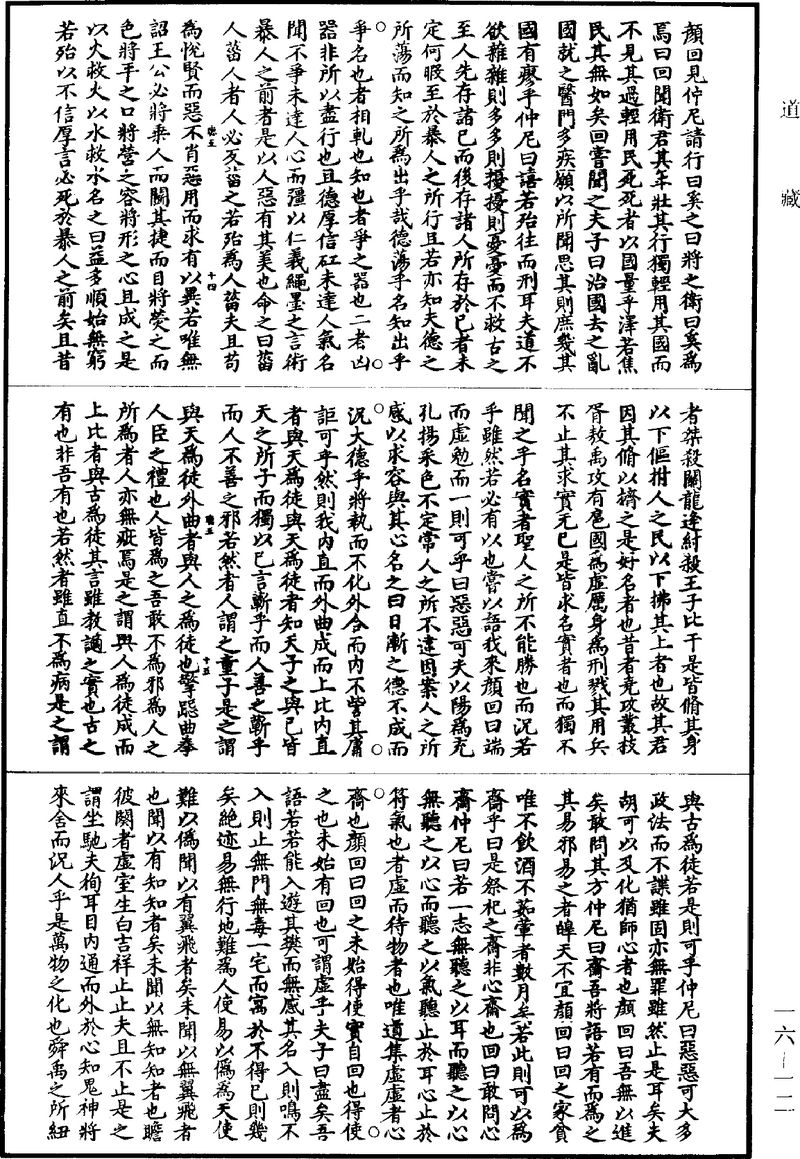 道藏
顏回見仲尼請行曰奚之曰將之衛曰奚爲
焉曰回聞衛君其年壯其行獨輕用其國而
不見其過輕用民死死者以國量乎澤若焦
民其無如矣回嘗聞之夫子曰治國去之亂
國就之醫門多疾願以所聞思其則庶幾其
國有廖乎仲尼曰譆若殆往而刑耳夫道不
欲雜雜則多多則擾擾則憂憂而不救古之
至人先存諸己而後存諸人所存於己者未
定何暇至於暴人之所行且若亦知夫德之
所蕩而知之所爲出乎哉德蕩乎名知出乎
爭名也者相軋也知也者爭之器也二者凶
器非所以盡行也且德厚信矼未達人氣名
聞不爭未達人心而彊以仁義繩墨之言術
暴人之前者是以人惡有其美也命之曰菑
人菑人者人必反菑之若殆爲人菑夫且苟
爲悅賢而惡不肖惡用而求有以異若唯無
詔王公必將乘人而鬬其捷而目將熒之而
色將平之口將營之容將形之心且成之是
以火救火以水救水名之曰益多順始無窮
若殆以不信厚言必死於暴人之前矣且昔
者桀殺關龍逢紂殺王子比干是皆脩其身
以下傴拊人之民以下拂其上者也故其君
因其脩以擠之是好名者也昔者堯攻叢枝
胥敖禹攻有扈國爲虛厲身爲刑戮其用兵
不止其求實无已是皆求名實者也而獨不
聞之乎名實者聖人之所不能勝也而況若
乎雖然若必有以也嘗以語我來顏回曰端
而虛勉而一則可乎曰惡惡可夫以陽爲充
孔揚采色不定常人之所不違因案人之所
感以求容與其心名之曰日漸之德不成而
況大德乎將執而不化外合而內不訾其庸
詎可乎然則我內直而外曲成而上比內直
者與天爲徒與天爲徒者知天子之與己皆
天之所子而獨以己言蘄乎而人善之蘄乎
而人不善之邪若然者人謂之童子是之謂
與天爲徒外曲者與人之爲徒也擎跽曲拳
人臣之禮也人皆爲之吾敢不爲邪爲人之
所爲者人亦無疵焉是之謂與人爲徒成而
上比者與古爲徒其言雖教讁之實也古之
有也非吾有也若然者雖直不爲病是之謂
與古爲徒若是則可乎仲尼曰惡惡可大多
政法而不諜雖固亦無罪雖然止是耳矣夫
胡可以及化猶師心者也顏回曰吾無以進
矣敢問其方仲尼曰齋吾將語若有而爲之
其易邪易之者皞天不宜顏回曰回之家貧
唯不飲酒不茹葷者數月矣若此則可以爲
齋乎曰是祭祀之齋非心齋也回曰敢問心
齋仲尼曰若一志無聽之以耳而聽之以心
無聽之以心而聽之以氣聽止於耳心止於
符氣也者虛而待物者也唯道集虛虛者心
齋也顏回曰回之未始得使實自回也得使
之也未始有回也可謂虛乎夫子曰盡矣吾
語若若能入遊其樊而無感其名入則鳴不
入則止無門無毒一宅而寓於不得已則幾
矣絕迹易無行地難爲人使易以僞爲天使
難以僞聞以有翼飛者矣未聞以無翼飛者
也聞以有知知者矣未聞以無知知者也瞻
彼闋者虛室生白吉祥止止夫且不止是之
謂坐馳夫徇耳目內通而外於心知鬼神將
來舍而況人乎是萬物之化也舜禹之所紐
十四
十五
一六—一二